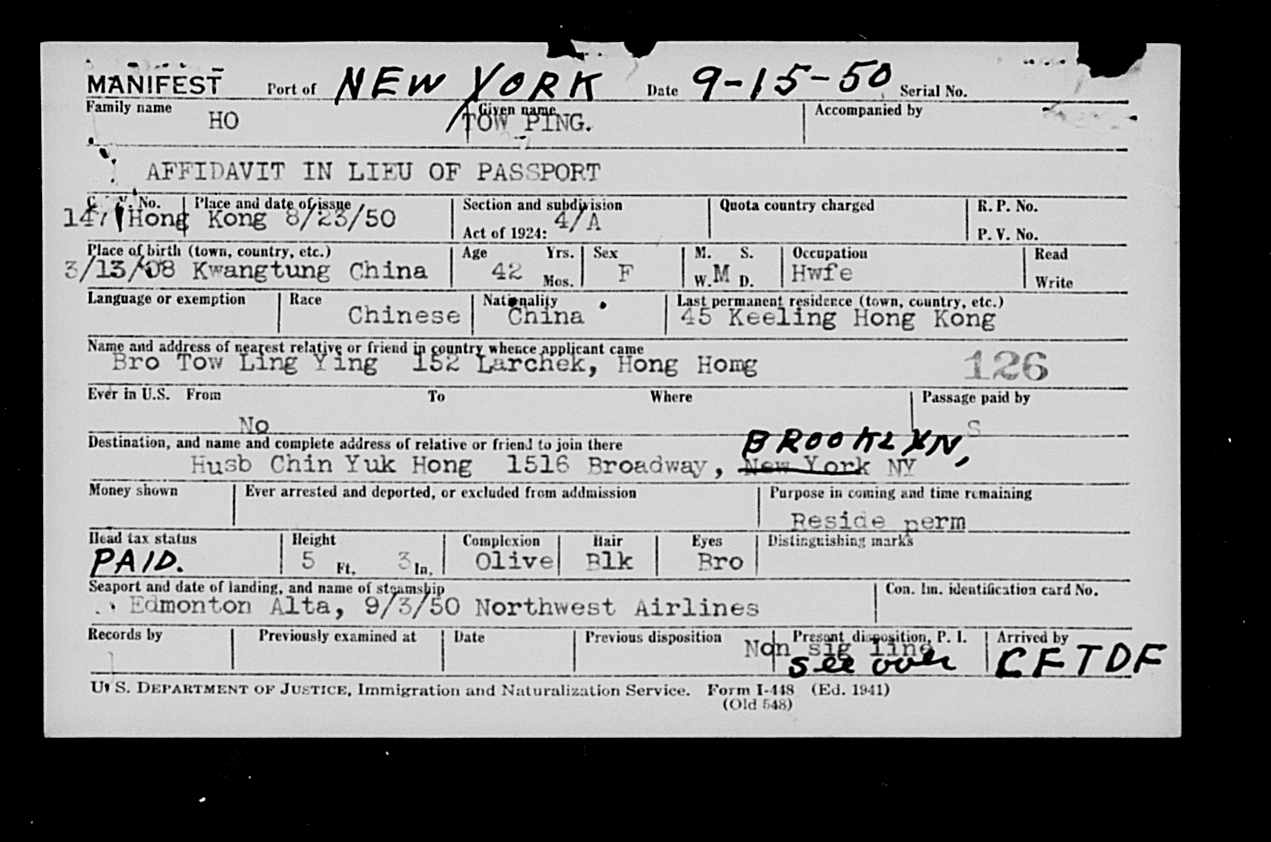 MANIFEST Port of NEW YORK Date 9-15-50 Serial No.
Family name Given name Accompanied by
HO TOW PING.
AFFIDAVIT IN LIEU OF PASSPORT
No. Place and date of issue Section and subdivision Quota country charged R. P. No.
147 Hong Kong 8/23/50 4/A
Act of 1924: P. V. No.
Place of birth (town, country, etc.) Age Yrs. Sex M. S. Occupation Read
3/13/08 Kwangtung China 42 Mos. F W. M D. Hwfe Write
Language or exemption Race Nationality Last permanent residence (town, country, etc.)
Chinese China 45 Keeling Hong Kong
Name and address of nearest relative or friend in country whence applicant came
Bro Tow Ling Ying 152 Larchek, Hong Homg 126
Ever in U.S. From To Where Passage paid by
No S
Destination, and name and complete address of relative or friend to join there BROOKLYN,
Husb Chin Yuk Hong 1516 Broadway, New York NY
Money shown Ever arrested and deported, or excluded from addmission Purpose in coming and time remaining
Reside perm
Head tax status Height Complexion Hair Eyes Distinguishing marks
PAID. 5 Ft. 3 In. Olive Blk Bro
Seaport and date of landing, and name of steamship Con. Im. identification card No.
Edmonton Alta, 9/3/50 Northwest Airlines
Records by Previously examined at Date Previous disposition Present disposition, P. I. Arrived by
Non sig line
see over CFTDF
U. S. DEPARTMENT OF JUSTICE, Immigration and Naturalization Service. Form I-448 (Ed. 1941)
(Old 548)